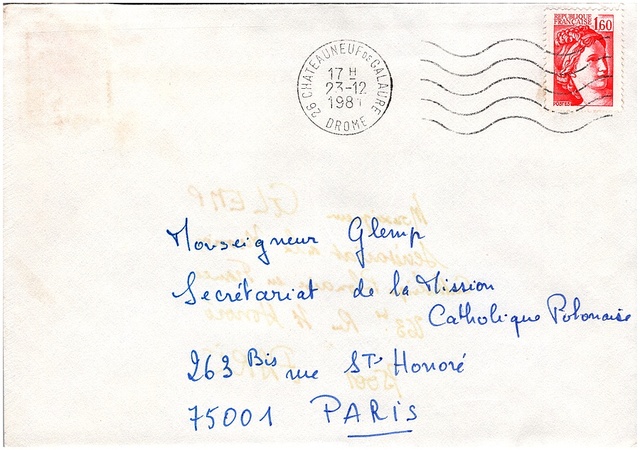 REPUBLIQUE
FRANÇAISE
1,60
POSTES
26 CHATEAUNEUF DE GALAURE
17 H
23-12
1981
DROME
Monseigneur Glemp
Secrétariat de la Mission
Catholique Polonaise
263 Bis rue St Honoré
75001 PARIS